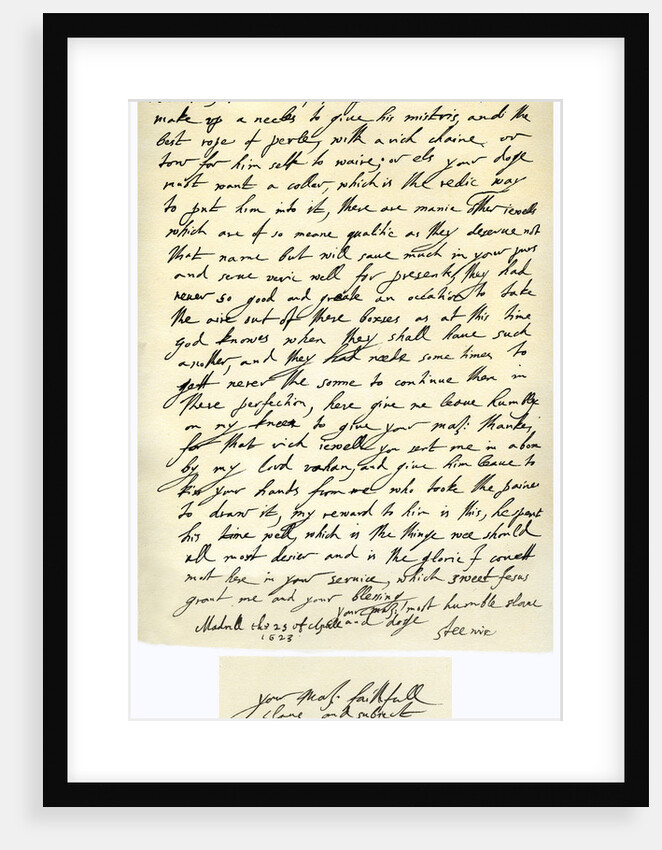 make up a necles to give his mistris, and the
best rope of perle, with a rich chaine or
tow for him self to waire, or els your doge
must want a coller, which is the redie way
to put him into it, there are manie other iewells
which are of so meane qualitie as they deserve not
that name but will save much in your purs
and serve verie well for presents, they had
never so good and greate an occation to take
the aire out of there boxses as at this time
god knowes when they shall have such
another, and they had neede some times to
gett never the sonne to continue them in
there perfection, here give me leave humblie
on my knees to give your maj: thankes
for that rich iewell you sent me in a box
by my lord vahan, and give him leave to
kiss your hands from me who tooke the paines
to draw it, my reward to him is this, he spent
his time well, which is the thinge wee should
all most desier and is the glorie I covett
most here in your service, which sweet Jesus
grant me and your blessing
your maj: most humble slave
Madrill the 25 of Aprill and doge
1623 Steenie
your Maj: faithfull
slave and subiect